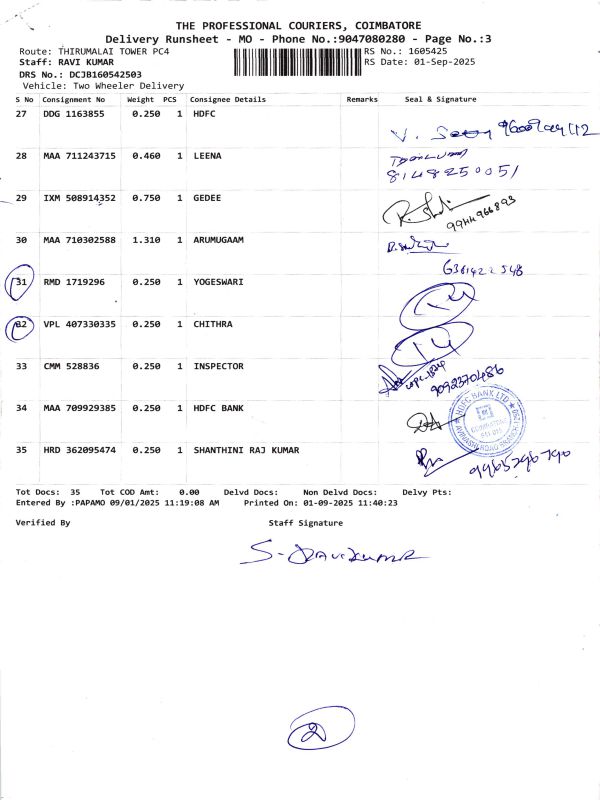 THE PROFESSIONAL COURIERS, COIMBATORE
Delivery Runsheet - MO - Phone No.:9047080280 - Page No.:3
Route: THIRUMALAI TOWER PC4 RS No.: 1605425
Staff: RAVI KUMAR RS Date: 01-Sep-2025
DRS No.: DCJB160542503
Vehicle: Two Wheeler Delivery
S No Consignment No Weight PCS Consignee Details Remarks Seal & Signature
27 DDG 1163855 0.250 1 HDFC
28 MAA 711243715 0.460 1 LEENA
8148250051
29 IXM 508914352 0.750 1 GEDEE
9944966893
30 MAA 710302588 1.310 1 ARUMUGAAM
6381422348
31 RMD 1719296 0.250 1 YOGESWARI
32 VPL 407330335 0.250 1 CHITHRA
33 CMM 528836 0.250 1 INSPECTOR
9092370486
34 MAA 709929385 0.250 1 HDFC BANK
HDFC BANK LTD
35 HRD 362095474 0.250 1 SHANTHINI RAJ KUMAR
9965296790
Tot Docs: 35 Tot COD Amt: 0.00 Delvd Docs: Non Delvd Docs: Delvy Pts:
Entered By :PAPAMO 09/01/2025 11:19:08 AM Printed On: 01-09-2025 11:40:23
Verified By Staff Signature
S-RAVIKUMAR
2